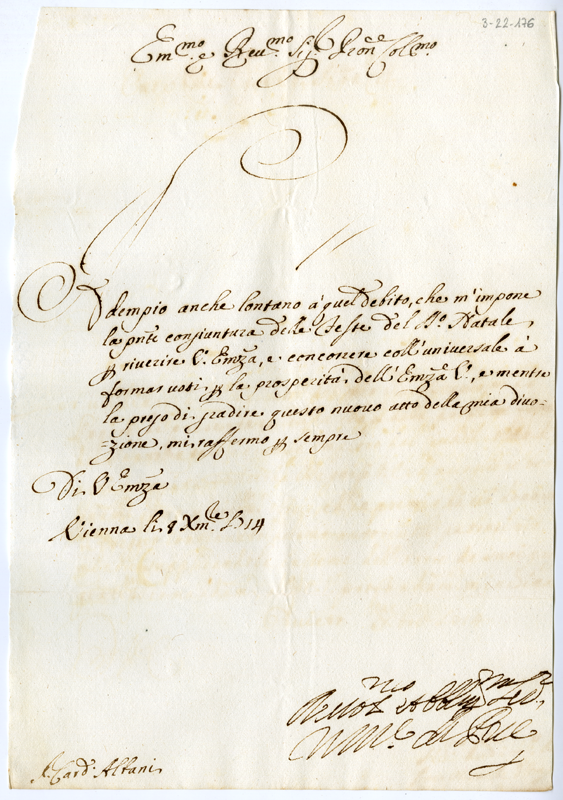 3-22-176
Em.mo e Reu.mo Sig.r Pron.e Coll.mo
Adempio anche lontano à quel debito, che m'impone
la pnte congiuntura delle Feste del S.o Natale,
riuerire V. Emza, e concorrere coll'uniuersale à
formar voti, la prosperità dell'Emza V., e mentre
la prego di gradire questo nuouo atto della mia diuo-
zione, mi raffermo sempre
Di V. Emza
Vienna li 8 Xmbre 1714
S.r Card: Albani